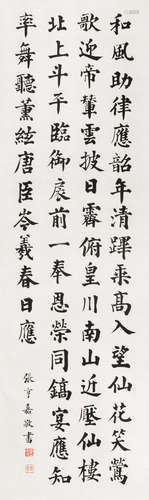 和風助律應韶年清蹕乘高入望仙花笑鶯
歌迎帝輦雲披日霽俯皇川南山近壓仙樓
北上斗平臨御扆前一奉恩榮同鎬宴應知
率舞聽薰絃唐臣岑羲春日應
張亨嘉敬書